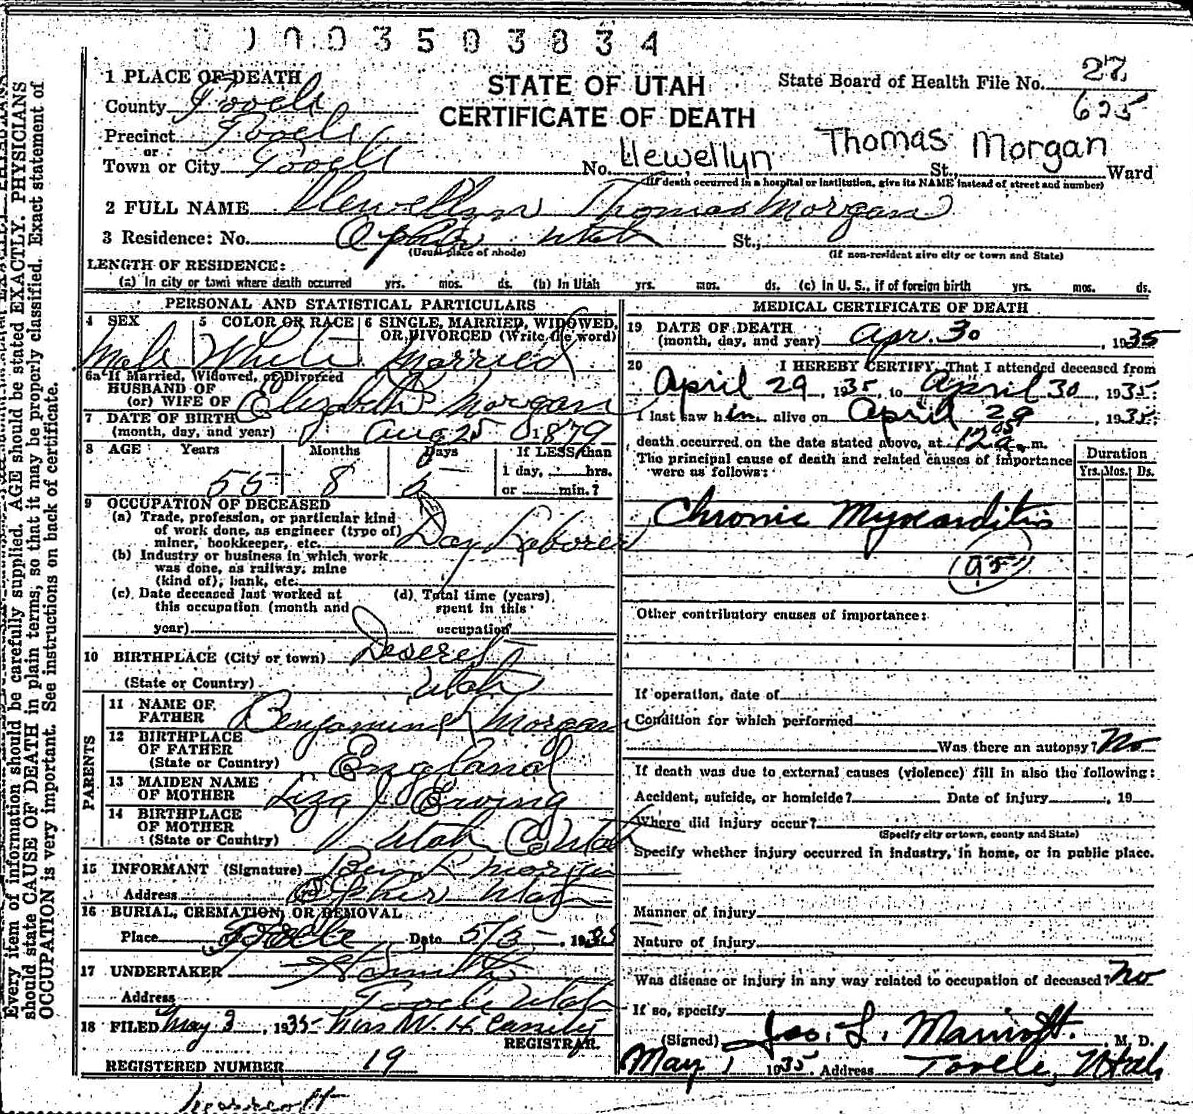 00003503834
1 PLACE OF DEATH
County Tooele
Precinct Tooele
or
Town or City Tooele
STATE OF UTAH
CERTIFICATE OF DEATH
State Board of Health File No. 27
625
No. Llewellyn Thomas Morgan St., Ward
(If death occurred in a hospital or institution, give its NAME instead of street and number)
2 FULL NAME Llewellyn Thomas Morgan
3 Residence: No. Ophir Utah St.,
(Usual place of abode) (If non-resident give city or town and State)
LENGTH OF RESIDENCE:
(a) In city or town where death occurred yrs. mos. ds. (b) In Utah yrs. mos. ds. (c) in U. S., if of foreign birth yrs. mos. ds.
PERSONAL AND STATISTICAL PARTICULARS
4 SEX 5 COLOR OR RACE 6 SINGLE, MARRIED, WIDOWED,
OR DIVORCED (Write the word)
Male White Married
6a If Married, Widowed, or Divorced
HUSBAND OF
(or) WIFE OF Elizabeth Morgan
7 DATE OF BIRTH
(month, day, and year) Aug 25 1879
8 AGE Years Months Days If LESS than
1 day, hrs.
55 8 5 or min.?
9 OCCUPATION OF DECEASED
(a) Trade, profession, or particular kind
of work done, as engineer (type of)
miner, bookkeeper, etc. Day Laborer
(b) Industry or business in which work
was done, as railway, mine
(kind of), bank, etc.
(c) Date deceased last worked at (d) Total time (years)
this occupation (month and spent in this
year) occupation
10 BIRTHPLACE (City or town) Deseret
(State or Country) Utah
PARENTS
11 NAME OF
FATHER Benjamin Morgan
12 BIRTHPLACE
OF FATHER
(State or Country) England
13 MAIDEN NAME
OF MOTHER Liza J. Erving
14 BIRTHPLACE
OF MOTHER
(State or Country) Utah Co Utah
15 INFORMANT (Signature) Ben R Morgan
Address Opher Utah
16 BURIAL, CREMATION, OR REMOVAL
Place Tooele Date 5/3 1935
17 UNDERTAKER
Address Tooele Utah
18 FILED May 3, 1935 Mrs W. H. Cassity
REGISTRAR.
REGISTERED NUMBER 19
MEDICAL CERTIFICATE OF DEATH
19 DATE OF DEATH
(month, day, and year) Apr. 30, 1935
20 I HEREBY CERTIFY, That I attended deceased from
April 29, 1935, to April 30, 1935
I last saw him alive on April 29, 1935
death occurred on the date stated above, at 12 05 a. m.
The principal cause of death and related causes of importance
were as follows: Duration
Yrs. Mos. Ds.
Chronic Myocarditis
Other contributory causes of importance:
If operation, date of
Condition for which performed
Was there an autopsy? No
If death was due to external causes (violence) fill in also the following:
Accident, suicide, or homicide? Date of injury, 19
Where did injury occur?
(Specify city or town, county and State)
Specify whether injury occurred in industry, in home, or in public place.
Manner of injury
Nature of injury
Was disease or injury in any way related to occupation of deceased? No
If so, specify
(Signed) Jos. L. Marriott, M. D.
May 1 1935 Address Tooele, Utah
Every item of information should be carefully supplied. AGE should be stated EXACTLY. PHYSICIANS
should state CAUSE OF DEATH in plain terms, so that it may be properly classified. Exact statement of
OCCUPATION is very important. See instructions on back of certificate.